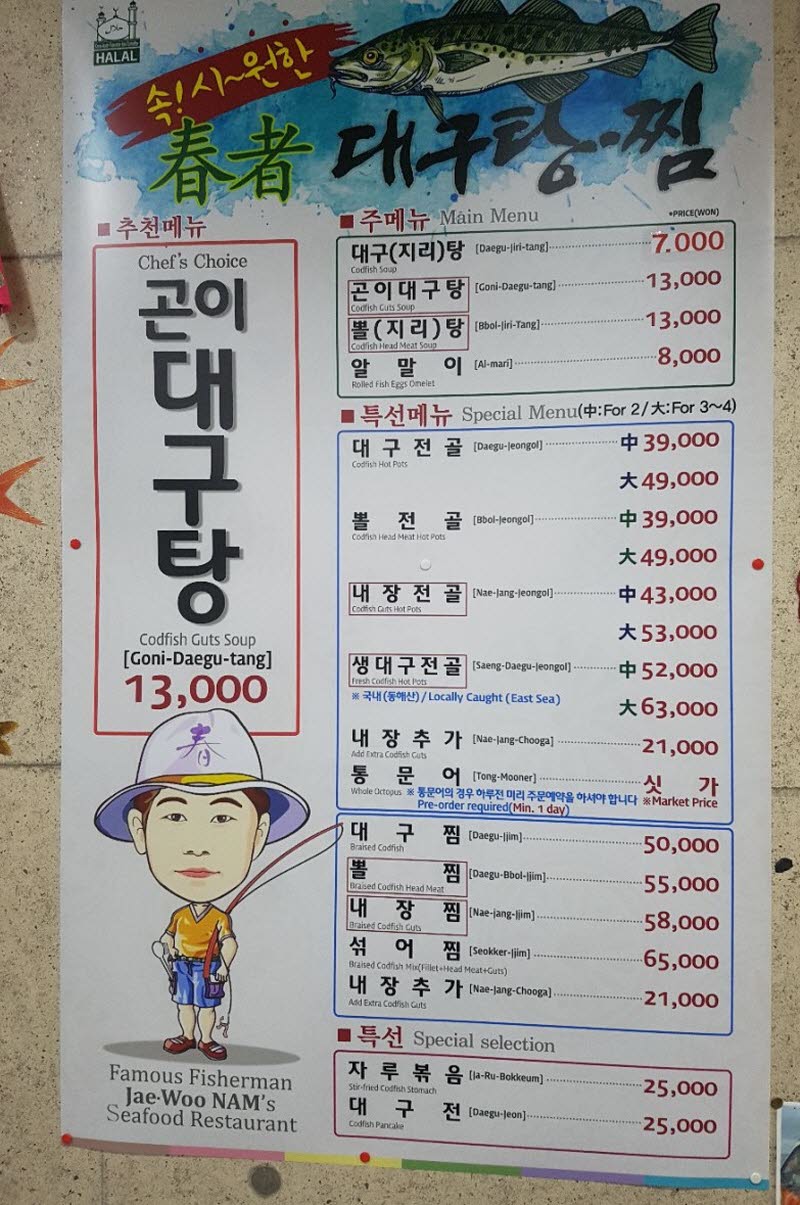 HALAL
속! 사~원한
春者 대구탕·찜
■ 추천메뉴
Chef's Choice
곤이
대
구
탕
Codfish Guts Soup
[Goni-Daegu-tang]
13,000
春
Famous Fisherman
Jae·Woo NAM's
Seafood Restaurant
■ 주메뉴 Main Menu •PRICE(WON)
대구(지리)탕 [Daegu-Jiri-tang] 7.000
Codfish Soup
곤이대구탕 [Goni-Daegu-tang] 13,000
Codfish Guts Soup
뽈(지리)탕 [Bbol-Jiri-Tang] 13,000
Codfish Head Meat Soup
알말이 [Al-mari] 8,000
Rolled Fish Eggs Omelet
■ 특선메뉴 Special Menu(中:For 2 / 大:For 3~4)
대구전골 [Daegu-Jeongol] 中 39,000
Codfish Hot Pots
大 49,000
뽈전골 [Bbol-Jeongol] 中 39,000
Codfish Head Meat Hot Pots
大 49,000
내장전골 [Nae-Jang-Jeongol] 中 43,000
Codfish Guts Hot Pots
大 53,000
생대구전골 [Saeng-Daegu-Jeongol] 中 52,000
Fresh Codfish Hot Pots
※ 국내(동해산) / Locally Caught (East Sea)
大 63,000
내장추가 [Nae-Jang-Chooga] 21,000
Add Extra Codfish Guts
통문어 [Tong-Mooner] 싯가
Whole Octopus ※ 통문어의 경우 하루전 미리 주문예약을 하셔야 합니다 ※Market Price
Pre-order required(Min. 1 day)
대구찜 [Daegu-Jjim] 50,000
Braised Codfish
뽈찜 [Daegu-Bbol-Jjim] 55,000
Braised Codfish Head Meat
내장찜 [Nae-jang-Jjim] 58,000
Braised Codfish Guts
섞어찜 [Seokker-Jjim] 65,000
Braised Codfish Mix(Fillet+Head Meat+Guts)
내장추가 [Nae-Jang-Chooga] 21,000
Add Extra Codfish Guts
■ 특선 Special selection
자루볶음 [Ja-Ru-Bokkeum] 25,000
Stir-fried Codfish Stomach
대구전 [Daegu-Jeon] 25,000
Codfish Pancake